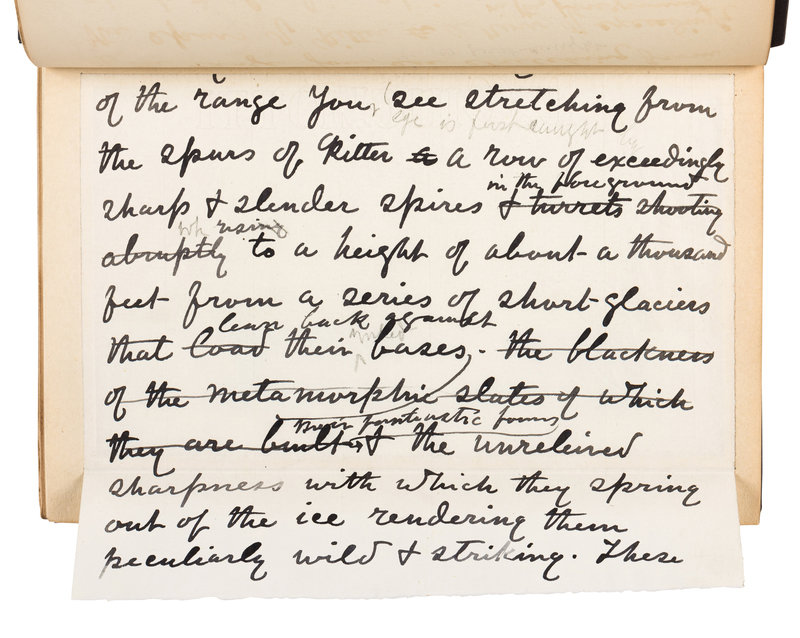 of the range You, see stretching from
eye is first caught by
the spurs of Ritter a a row of exceedingly
in the foreground
sharp & slender spires & turrets shooting
rising
abruptly to a height of about a thousand
feet from a series of short glaciers
lean back against
that load their bases, - the blackness
of the metamorphic slates of which
their fantastic forms
they are built, & the unrelieved
sharpness with which they spring
out of the ice rendering them
peculiarly wild & striking. These